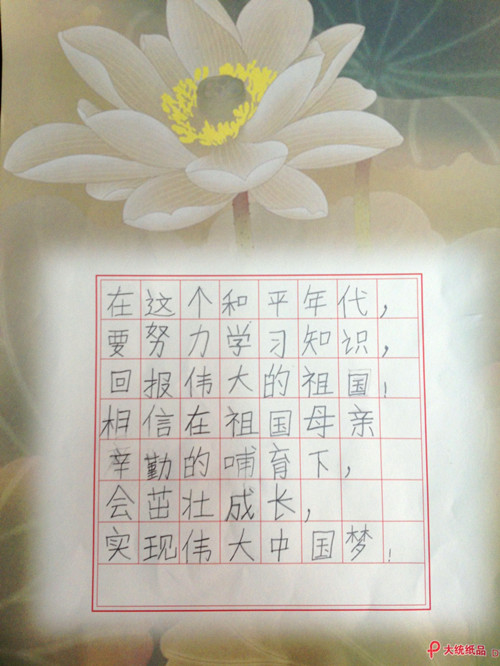 在这个和平年代，
要努力学习知识，
回报伟大的祖国！
相信在祖国母亲
辛勤的哺育下，
会茁壮成长，
实现伟大中国梦！
大统纸品